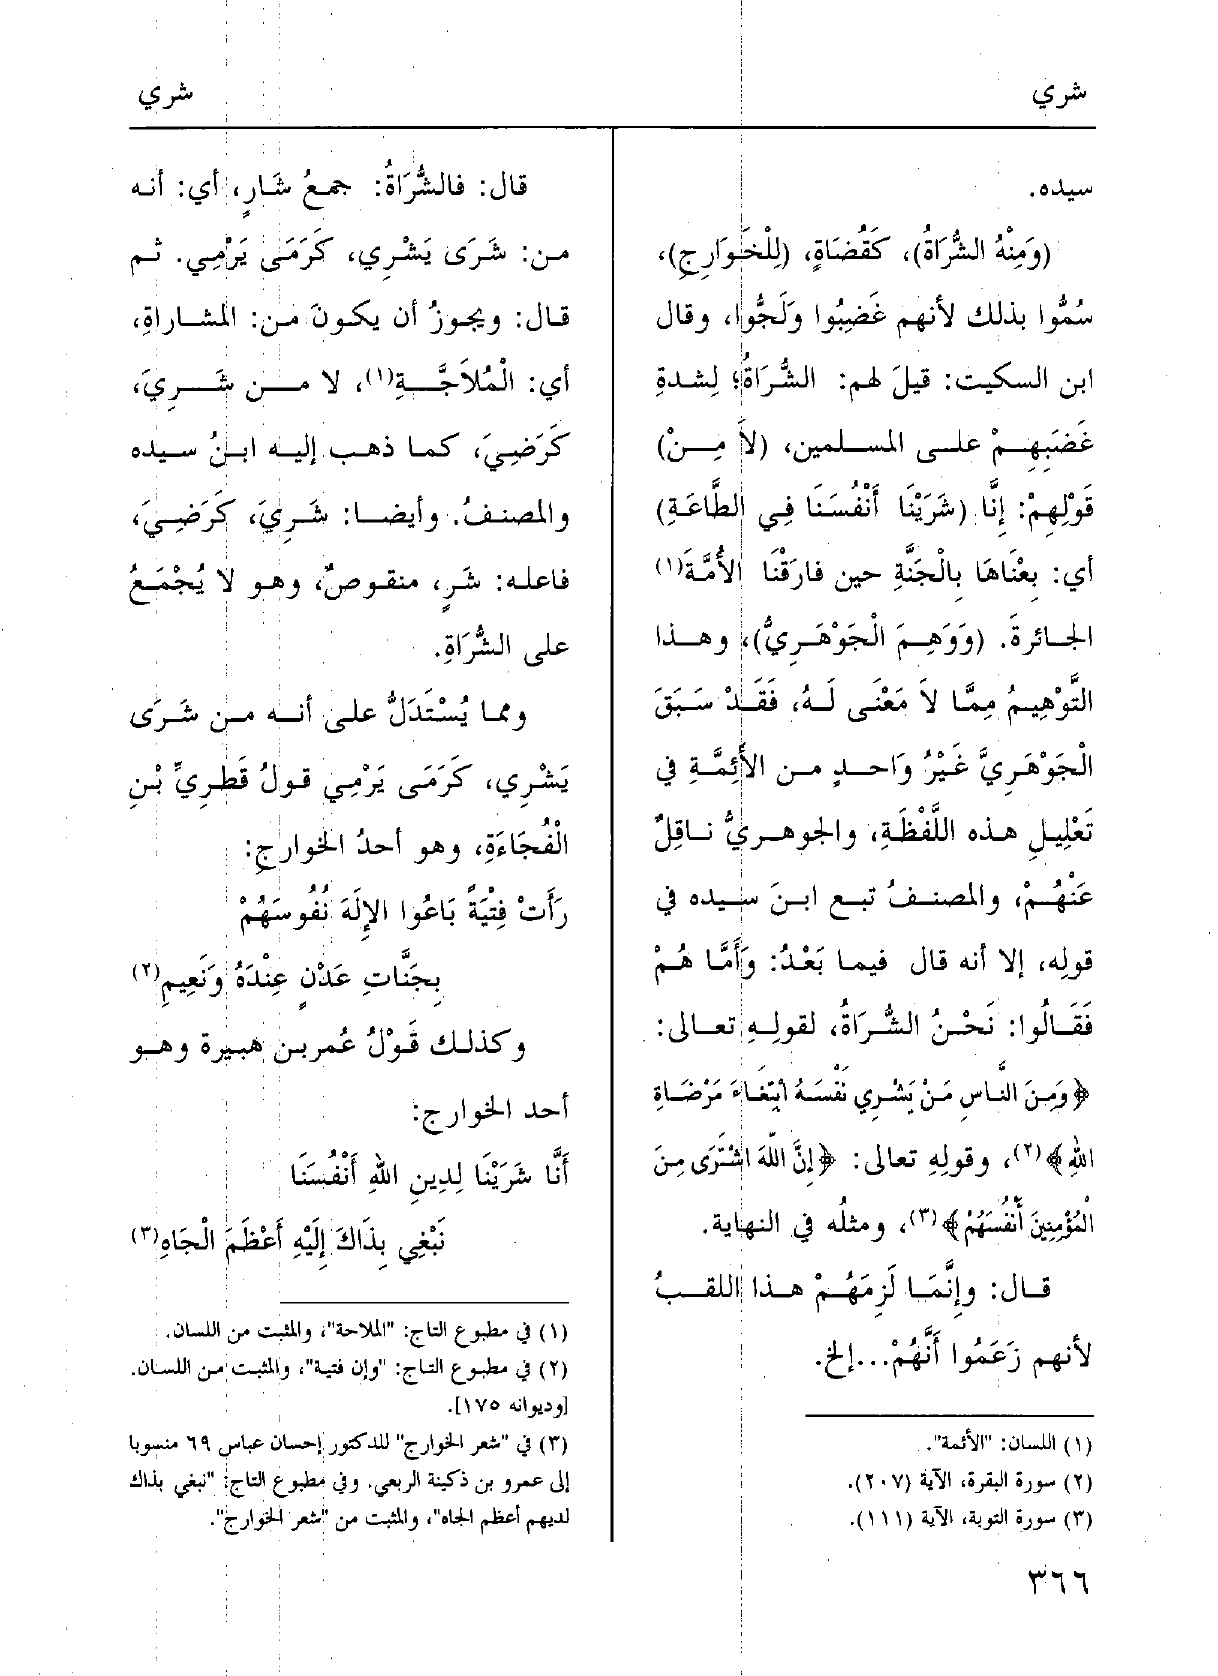 شري
شري
سيده.
(وَمِنْهُ الشُّرَاةُ)، كَقُضَاةٍ، (لِلْخَوَارِجِ)،
سُمُّوا بذلك لأنهم غَضِبُوا وَلَجُّوا، وقال
ابن السكيت: قيلَ لهم: الشُّرَاةُ؛ لِشدةِ
غَضَبِهِمْ على المسلمين، (لاَ مِنْ)
قَوْلِهِمْ: إِنَّا (شَرَيْنَا أَنْفُسَنَا فِي الطَّاعَةِ)
أي: بِعْنَاهَا بِالْجَنَّةِ حين فارَقْنَا الأُمَّةَ(١)
الجائرةَ. (وَوَهِمَ الْجَوْهَرِيُّ)، وهذا
التَّوْهِيمُ مِمَّا لاَ مَعْنَى لَهُ، فَقَدْ سَبَقَ
الْجَوْهَرِيَّ غَيْرُ وَاحدٍ من الأَئِمَّةِ في
تَعْلِيلِ هذه اللَّفْظَةِ، والجوهريُّ ناقِلٌ
عَنْهُمْ، والمصنفُ تبع ابنَ سيده في
قوله، إلا أنه قال فيما بَعْدُ: وَأَمَّا هُمْ
فَقَالُوا: نَحْنُ الشُّرَاةُ، لقولِهِ تعالى:
﴿وَمِنَ النَّاسِ مَنْ يَشْرِي نَفْسَهُ ابْتِغَاءَ مَرْضَاةِ
اللهِ﴾(٢)، وقولِهِ تعالى: ﴿إِنَّ اللَّهَ اشْتَرَى مِنَ
الْمُؤْمِنِينَ أَنْفُسَهُمْ﴾(٣)، ومثلُه في النهاية.
قال: وإِنَّمَا لَزِمَهُمْ هذا اللقبُ
لأنهم زَعَمُوا أَنَّهُمْ...إلخ.
(١) اللسان: "الأئمة".
(٢) سورة البقرة، الآية (٢٠٧).
(٣) سورة التوبة، الآية (١١١).
قال: فالشُّرَاةُ: جمعُ شَارٍ، أي: أنه
من: شَرَى يَشْرِي، كَرَمَى يَرْمِي. ثم
قال: ويجوزُ أن يكونَ من: المشاراةِ،
أي: الْمُلاَجَّةِ(١)، لا من شَرِيَ،
كَرَضِيَ، كما ذهب إليه ابنُ سيده
والمصنفُ. وأيضا: شَرِيَ، كَرَضِيَ،
فاعله: شَرٍ، منقوصٌ، وهو لا يُجْمَعُ
على الشُّرَاةِ.
ومما يُسْتَدَلُّ على أنه من شَرَى
يَشْرِي، كَرَمَى يَرْمِي قولُ قَطَرِيِّ بْنِ
الْفُجَاءَةِ، وهو أحدُ الخوارج:
رَأَتْ فِتْيَةً بَاعُوا الإِلَهَ نُفُوسَهُمْ
بِجَنَّاتِ عَدْنٍ عِنْدَهُ وَنَعِيمِ(٢)
وكذلك قَوْلُ عُمر بن هبيرة وهو
أحد الخوارج:
أَنَّا شَرَيْنَا لِدِينِ اللهِ أَنْفُسَنَا
نَبْغِي بِذَاكَ إِلَيْهِ أَعْظَمَ الْجَاهِ(٣)
(١) في مطبوع التاج: "الملاحة"، والمثبت من اللسان.
(٢) في مطبوع التاج: "وإن فتية"، والمثبت من اللسان.
[وديوانه ١٧٥].
(٣) في "شعر الخوارج" للدكتور إحسان عباس ٦٩ منسوبا
إلى عمرو بن ذكينة الربعي. وفي مطبوع التاج: "نبغي بذاك
لديهم أعظم الجاه"، والمثبت من "شعر الخوارج".
٣٦٦